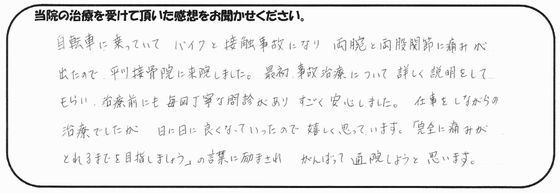 当院の治療を受けて頂いた感想をお聞かせください。
自転車に乗っていて バイクと接触事故になり 両腕と両股関節に痛みが
出たので、平川接骨院に来院しました。最初、事故治療について 詳しく説明をして
もらい、治療前にも 毎回丁寧な問診があり すごく安心しました。 仕事をしながらの
治療でしたが 日に日に良くなっていったので 嬉しく思っています。「完全に痛みが
とれるまでを目指しましょう」の言葉に励まされ がんばって通院しようと思います。